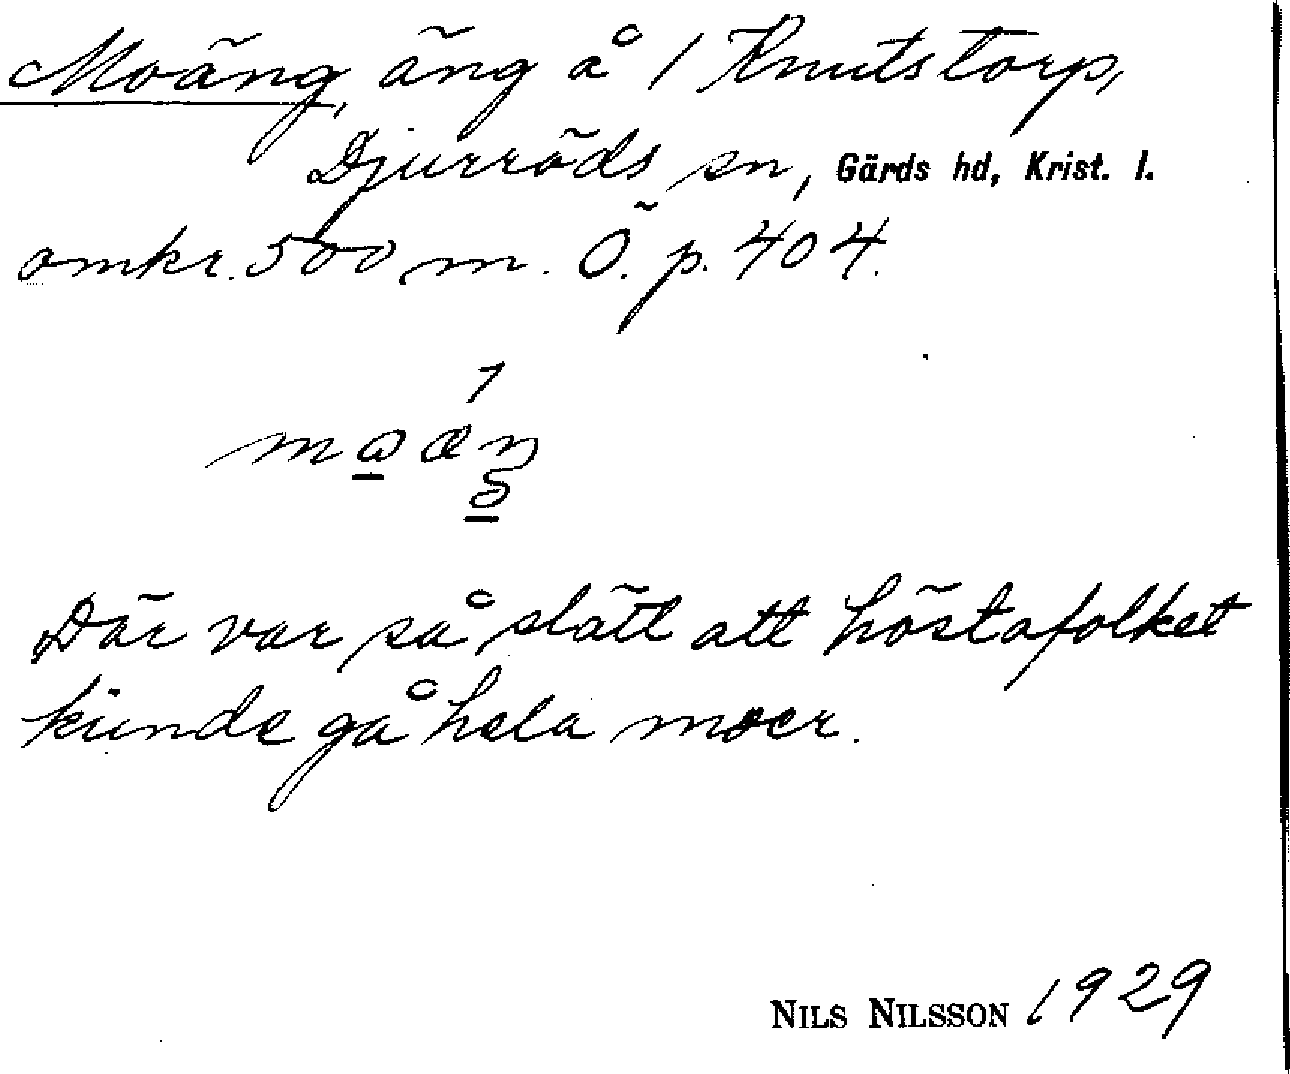 Moäng, äng å 1 Knutstorp,
Djurröds sn, Gärds hd, Krist. l.
omkr. 500 m. Ö. p. 404.
Där var så slätt att höstafolket
kunde gå hela moer.
NILS NILSSON 1929